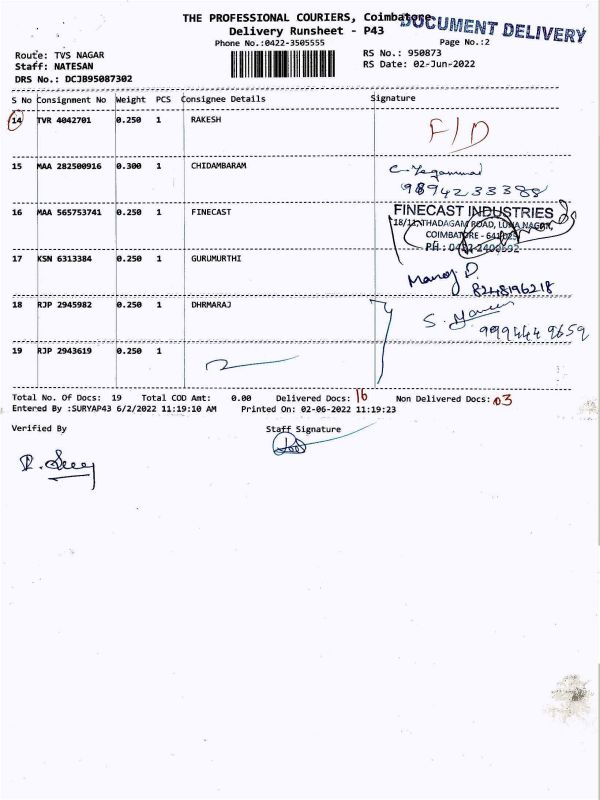 THE PROFESSIONAL COURIERS, Coimbatore
DOCUMENT DELIVERY
Delivery Runsheet - P43
Phone No.:0422-3505555
Page No.:2
Route: TVS NAGAR
RS No.: 950873
Staff: NATESAN
RS Date: 02-Jun-2022
DRS No.: DCJB95087302
S No Consignment No Weight PCS Consignee Details Signature
14 TVR 4042701 0.250 1 RAKESH F/D
15 MAA 282500916 0.300 1 CHIDAMBARAM
9894233388
16 MAA 565753741 0.250 1 FINECAST FINECAST INDUSTRIES
18/11, THADAGAM ROAD, LUNA NAGAR,
COIMBATORE - 641025
PH : 0422-2400592
17 KSN 6313384 0.250 1 GURUMURTHI Manoj D.
8248196218
18 RJP 2945982 0.250 1 DHRMARAJ S.
9994449659
19 RJP 2943619 0.250 1
Total No. Of Docs: 19 Total COD Amt: 0.00 Delivered Docs: 16 Non Delivered Docs: 03
Entered By :SURYAP43 6/2/2022 11:19:10 AM Printed On: 02-06-2022 11:19:23
Verified By Staff Signature